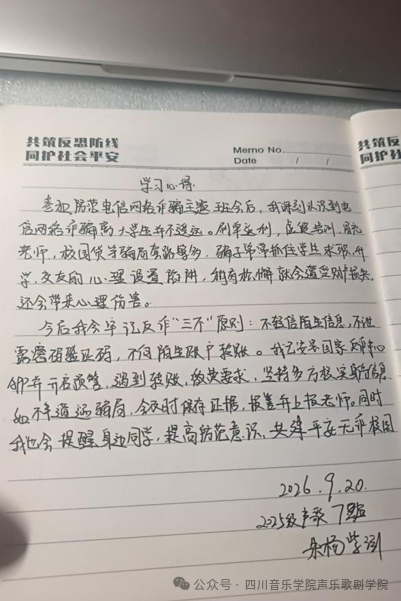 共筑反恐防线
同护社会平安
Memo No.
Date / /
共筑反
同护社
学习心得
参加防范电信网络诈骗主题班会后，我深刻认识到电
信网络诈骗离大学生并不遥远。刷单返利，虚假培训，冒充
老师，校园贷等骗局套路繁多，骗子常常抓住学生求职、升
学、交友的心理设置陷阱，稍有松懈就会遭受财产损失，
还会带来心理伤害。
今后我会牢记反诈“三不”原则：不轻信陌生信息，不泄
露密码验证码，不向陌生账户转账。我已安装国家反诈中心
APP并开启预警，遇到转账、缴费要求，坚持多方核实身份信息
如不幸遭遇骗局，会及时保存证据，报警并上报老师。同时
我也会提醒身边同学，提高防范意识，共建平安无诈校园
2026.9.20.
2025级声教7班
朱杨
公众号 · 四川音乐学院声乐歌剧学院